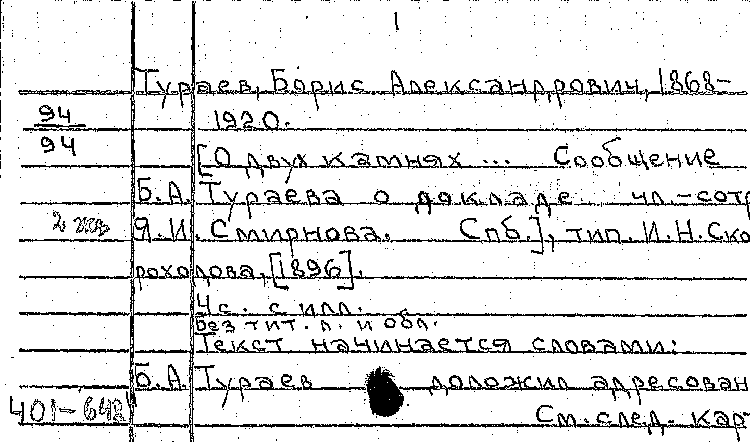 1
Тураев, Борис Александрович, 1868-
94
1920.
94
[О двух камнях ... Сообщение
Б.А. Тураева о докладе чл.-сотр
2 экз
Я.И. Смирнова. Спб.], тип. И.Н. Ско
роходова, [1896].
4 с. с илл.
Без тит. л. и обл.
Текст начинается словами:
Б.А. Тураев доложил адресован
401-642
См. след. кар